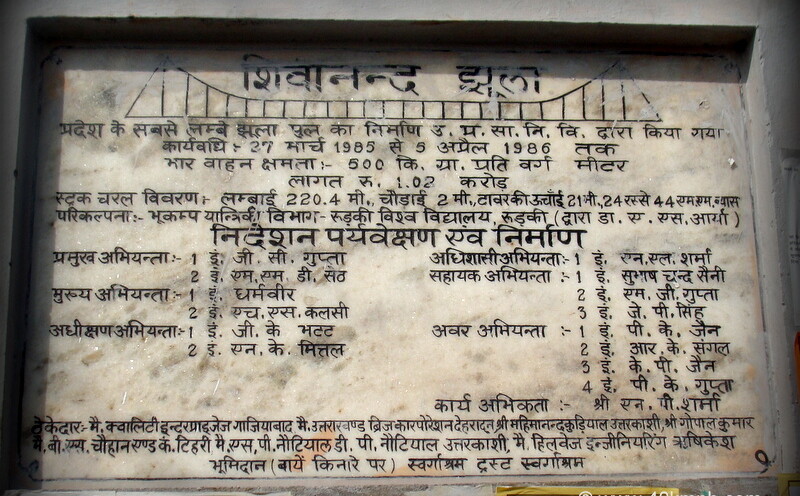 शिवानन्द झूला
प्रदेश के सबसे लम्बे झूला पुल का निर्माण उ. प्र. सा. नि. वि. द्वारा किया गया
कार्यवधि:- 27 मार्च 1985 से 5 अप्रैल 1986 तक
भार वाहन क्षमता:- 500 कि. ग्रा. प्रति वर्ग मीटर
लागत रु. 1.02 करोड़
स्ट्रक चरल विवरण:- लम्बाई 220.4 मी., चौड़ाई 2 मी., टावर की ऊंचाई 21 मी., 24 रस्से 44 एम.एम. व्यास
परिकल्पना:- भूकम्प यान्त्रिकी विभाग- रुड़की विश्व विद्यालय, रूड़की (द्वारा डा. ए. एस. आर्या)
निर्देशन पर्यवेक्षण एवं निर्माण
प्रमुख अभियन्ता:- 1 इं. जी. सी. गुप्ता अधिशासी अभियन्ता:- 1 इं. एन.एल. शर्मा
2 इं. एम. एम. डी. सेठ सहायक अभियन्ता:- 1 इं. सुभाष चन्द सैनी
मुख्य अभियन्ता:- 1 इं. धर्मवीर 2 इं. एम. जी. गुप्ता
2 इं. एच. एस. कलसी 3 इं. जे. पी. सिंह
अधीक्षण अभियन्ता:- 1 इं. जी. के भटट अवर अभियन्ता :- 1 इं. पी. के. जैन
2 इं. एन. के. मित्तल 2 इं. आर. के. संगल
3 इं. के. पी. जैन
4 इं. पी. के. गुप्ता
कार्य अभिकर्ता:- श्री एन. पी. शर्मा
ठेकेदार:- मै. क्वालिटी इन्टरप्राइजेज गाजियाबाद मै. उत्तराखण्ड ब्रिज कारपोरेशन देहरादून, श्री महिमानन्द कुड़ियाल उत्तरकाशी, श्री गोपाल कुमार
मै. बी. एस. चौहान एण्ड कं. टिहरी मै. एस. पी. नौटियाल डी. पी. नौटियाल उत्तरकाशी, मै. हिलवेज इन्जीनियरिंग ऋषिकेश
भूमिदान (बायें किनारे पर) स्वर्गाश्रम ट्रस्ट स्वर्गाश्रम